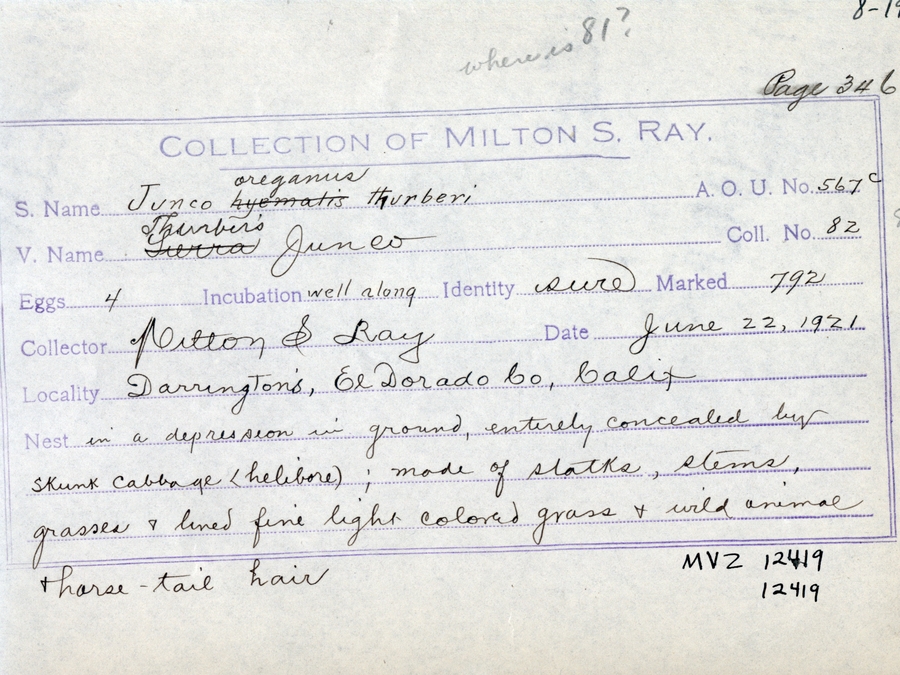 8-19
where is 81?
Page 346
COLLECTION OF MILTON S. RAY.
oreganus
S. Name Junco hyemalis thurberi A. O. U. No. 567c
Thurber's
V. Name Sierra Junco Coll. No. 82
Eggs 4 Incubation well along Identity sure Marked 792
Collector Milton S Ray Date June 22, 1921
Locality Darrington's, El Dorado Co, Calif
Nest in a depression in ground, entirely concealed by
skunk cabbage (helibore) ; made of stalks, stems,
grasses & lined fine light colored grass & wild animal
& horse-tail hair
MVZ 12419
12419